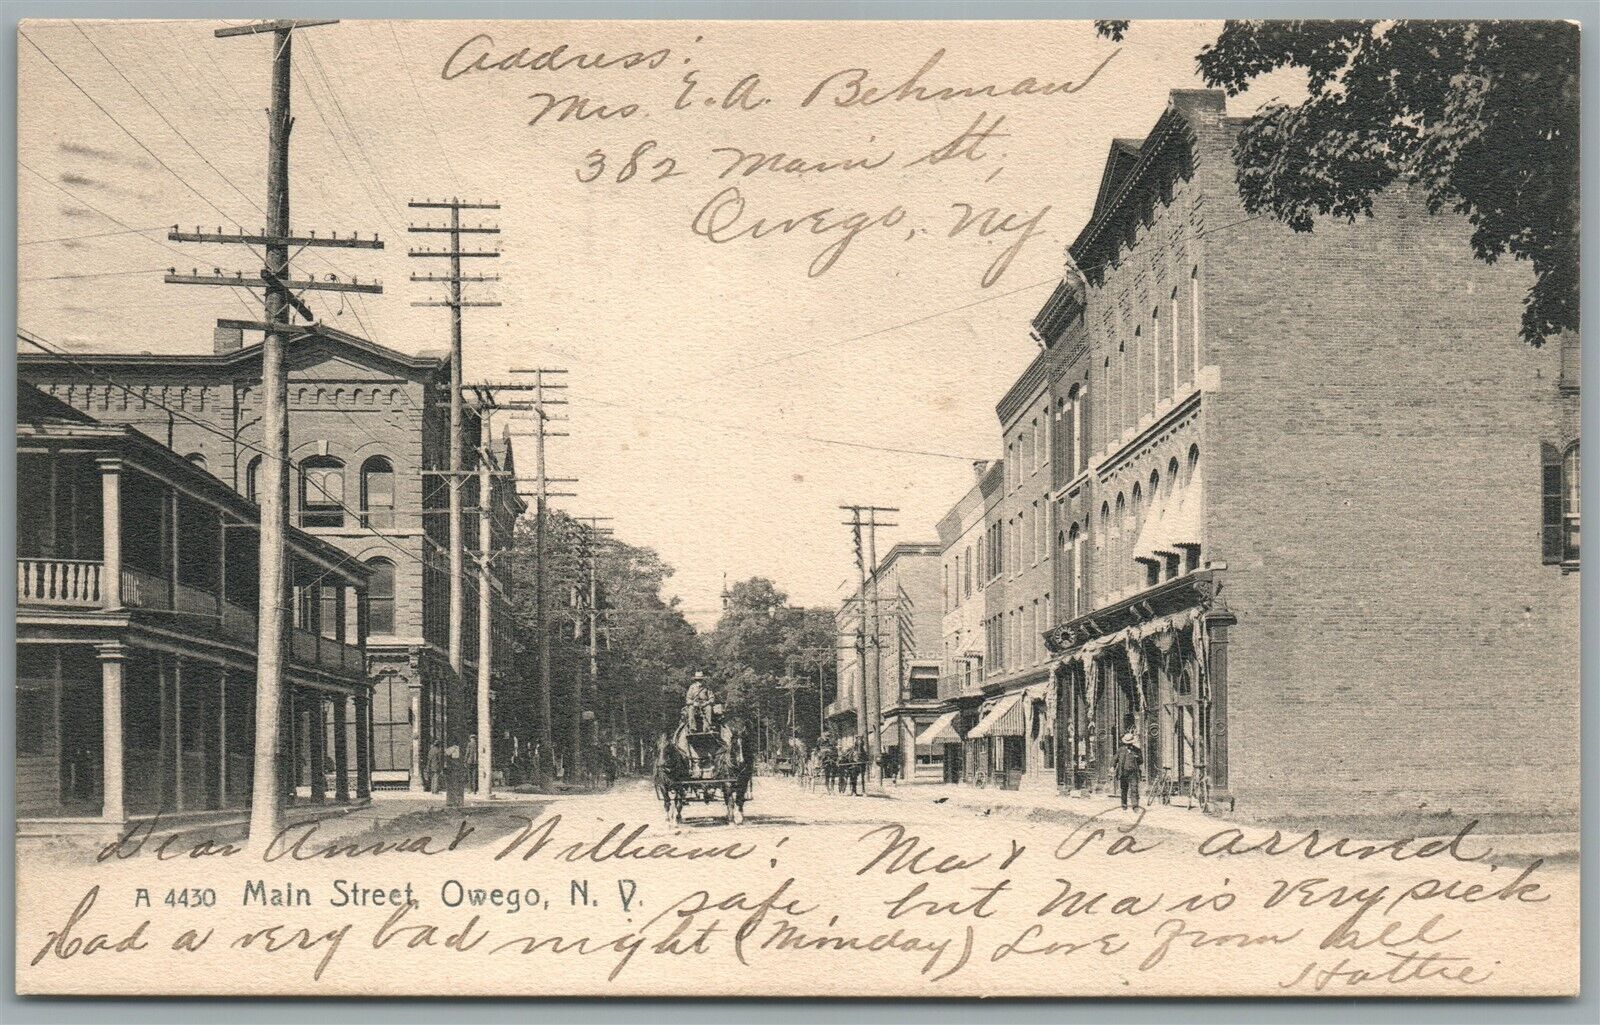 Address:
Mrs. E. A. Behman
382 Main St,
Owego, Ny
Dear Anna & William: Ma & Pa arrived
A 4430 Main Street, Owego, N. Y.
safe, but Ma is very sick
Had a very bad night (Monday) Love from all
Hattie